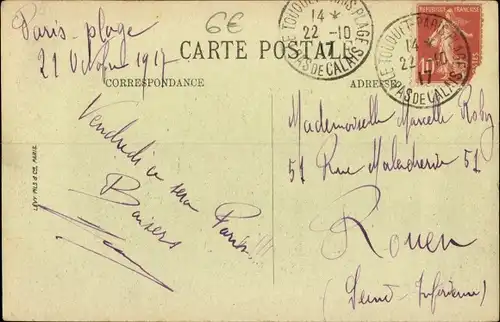 6€
Paris-plage
21 Octobre 1917
CARTE POSTALE
CORRESPONDANCE
ADRESSE
LE TOUQUET-PARIS-PLAGE
14 *
22 -10
17
PAS DE CALAIS
LE TOUQUET-PARIS-PLAGE
14 *
22 -10
17
PAS DE CALAIS
RÉPUBLIQUE FRANÇAISE
10
POSTES
Vendredi ce sera Paris!!!
Baisers
LÉVY FILS & Cie, PARIS
Mademoiselle Marcelle Roby
51 Rue Maladrerie 51
Rouen
(Seine-Inférieure)